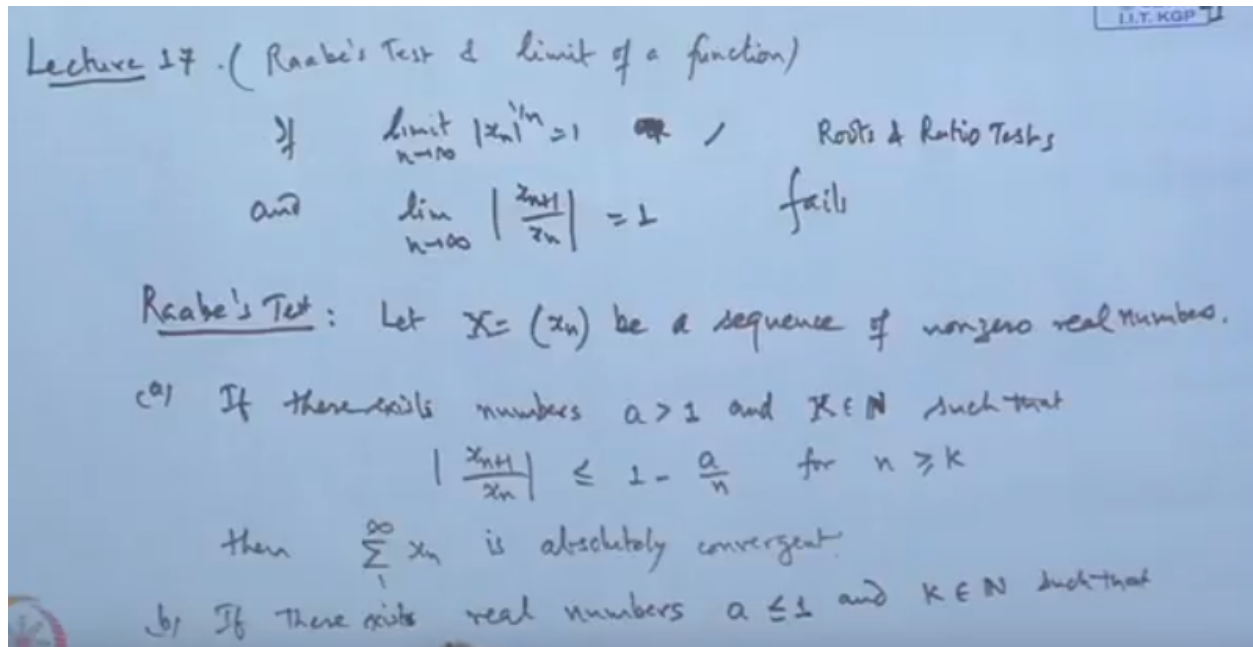 I.I.T. KGP
Lecture 17. (Raabe's Test & limit of a function)
If limit n→∞ |xₙ|^{1/n} = 1 , Roots & Ratio Tests
and lim n→∞ |xₙ₊₁/xₙ| = 1 fails
Raabe's Test : Let X = (xₙ) be a sequence of nonzero real numbers.
(a) If there exists numbers a > 1 and K ∈ N such that
|xₙ₊₁/xₙ| ≤ 1 - a/n for n ≥ K
then ∑₁^∞ xₙ is absolutely convergent.
(b) If there exists real numbers a ≤ 1 and K ∈ N such that